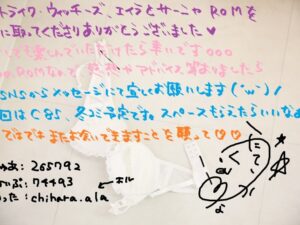 トライク・ウィッチーズ、エイラとサーニャ ROMを
に取ってくださりありがとうございました♡
しでも楽しんでいただけたら幸いです。。。
ROMなので 感想やアドバイス等ありましたら
SNSからメッセージにて宜しくお願いします('ω'*)ノ
回はC85、冬コミ予定です。スペースもらえたらいいなぁ
ではではまたお会いできますことを願って♡♡
あ: 265792
ぃぷ: 74493
った: chihara.ala
エル